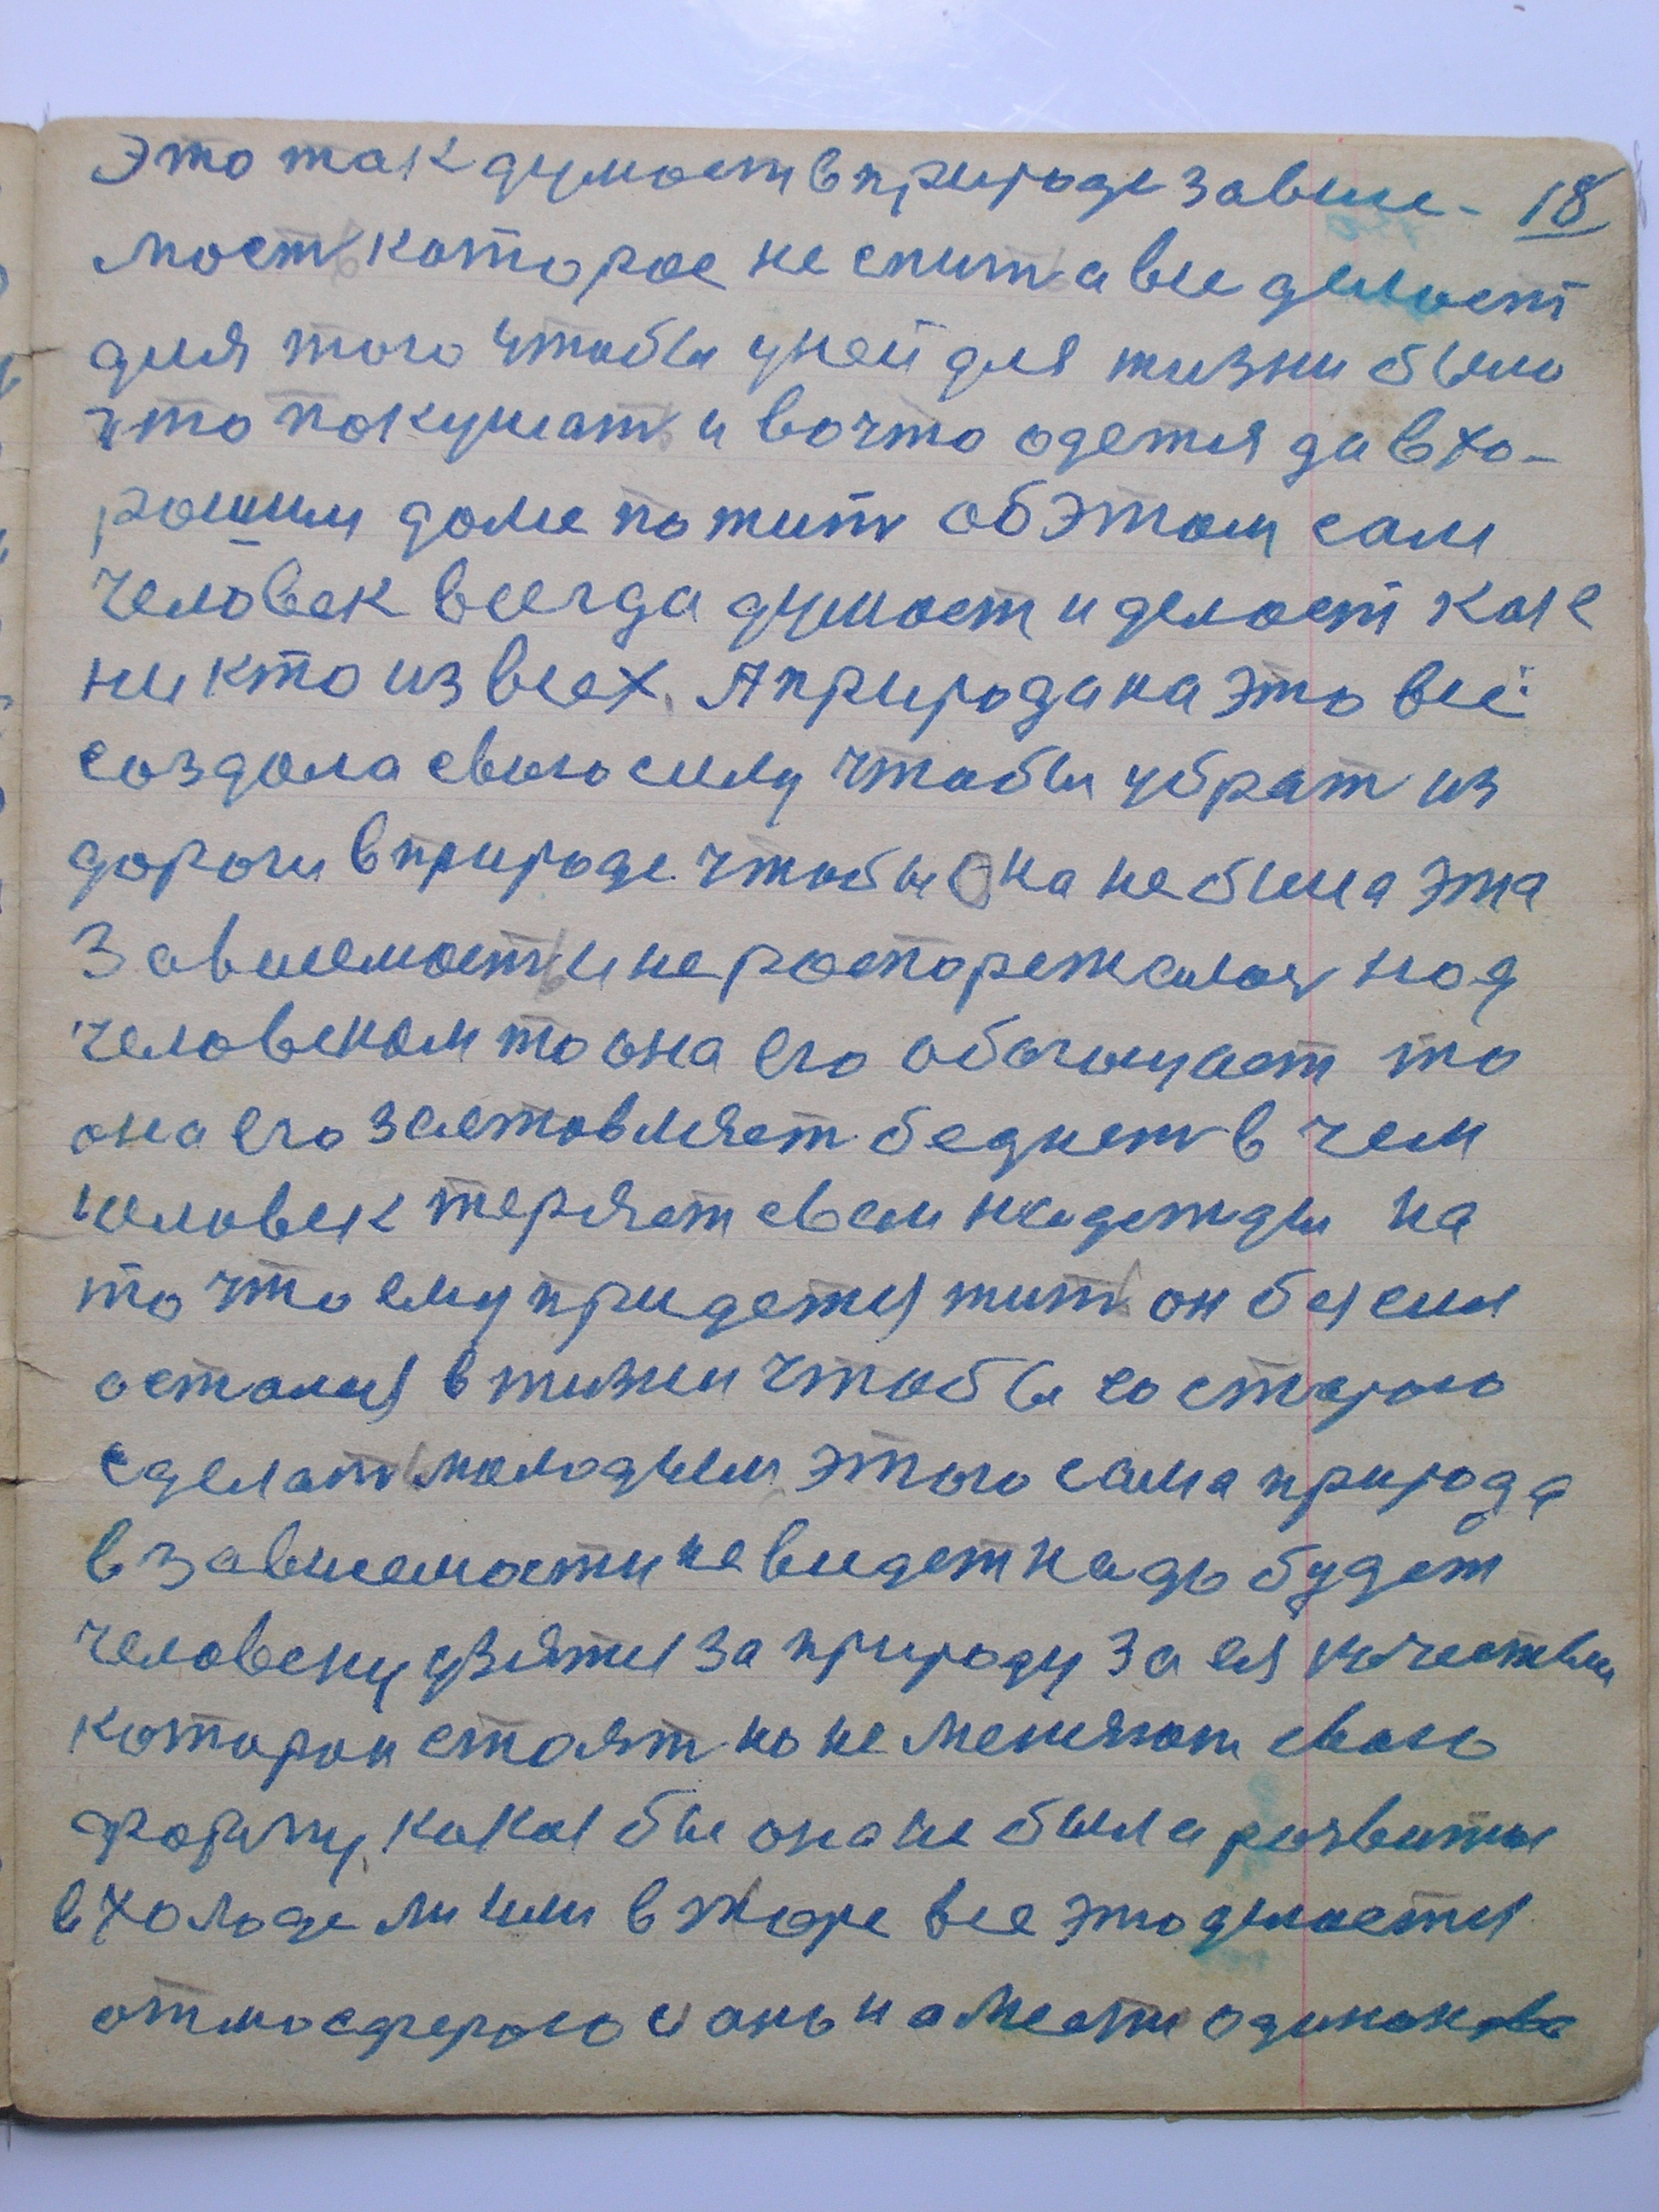 Это так думоет в природе завис- 18
мост которое не спит а все делоет
для того чтобы у ней для жизни было
что покушат и во что одется да в хо-
рошим доме пожит об этом сам
человек всегда думоет и делоет как
никто из всех. А природа на это всё
создола свою силу чтобы убрат из
дороги в природе чтобы она не была эта
зависемост и не роспорежалас над
человеком то она его обогощает то
она его заставляет беднет в чем
человек теряет свои надежды на
то что ему придется жит он без сил
осталися в жизни чтобы со старою
сделат молодым этого сама природа
в зависемости не видет надо будет
человеку взятся за природу за ея качествы
которои стоят но не меняют свою
форму какая бы она не была развитья
в холоде ли или в жаре все это делоется
отмосферою и оно на месте одинаково